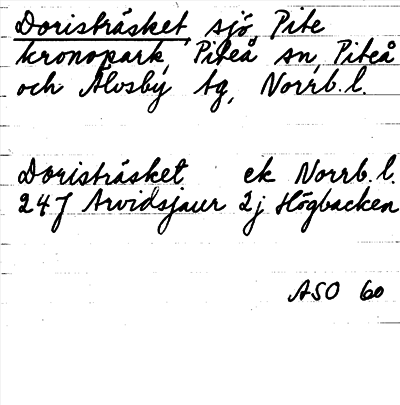 Doristräsket, sjö, Pite
kronopark, Piteå sn, Piteå
och Älvsby tg, Norrb. l.
Doristräsket ek Norrb. l.
24 J Arvidsjaur 2j Högbacken
ASO 60